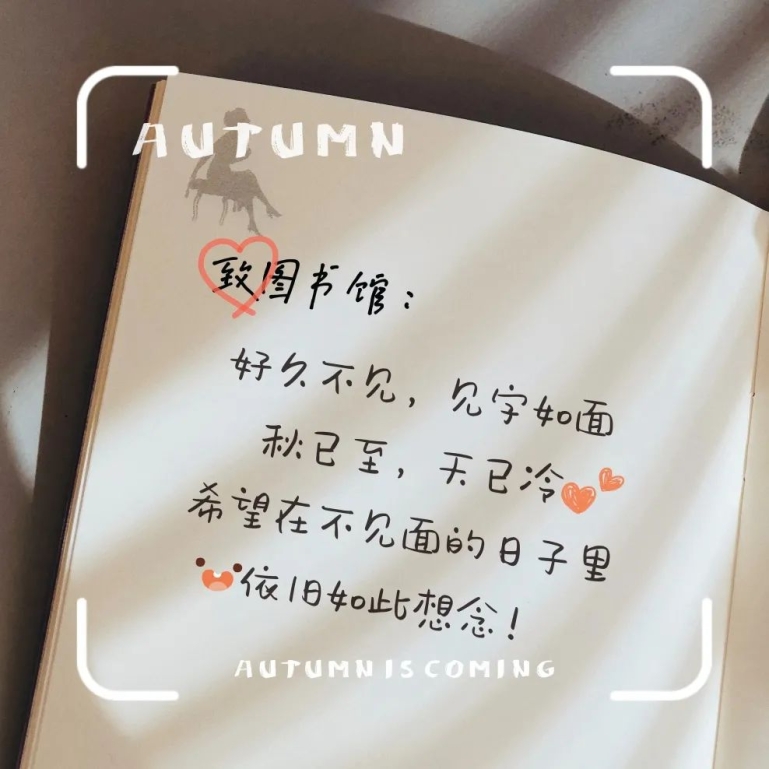 AUTUMN
致图书馆：
好久不见，见字如面
秋已至，天已冷
希望在不见面的日子里
依旧如此想念！
AUTUMN IS COMING